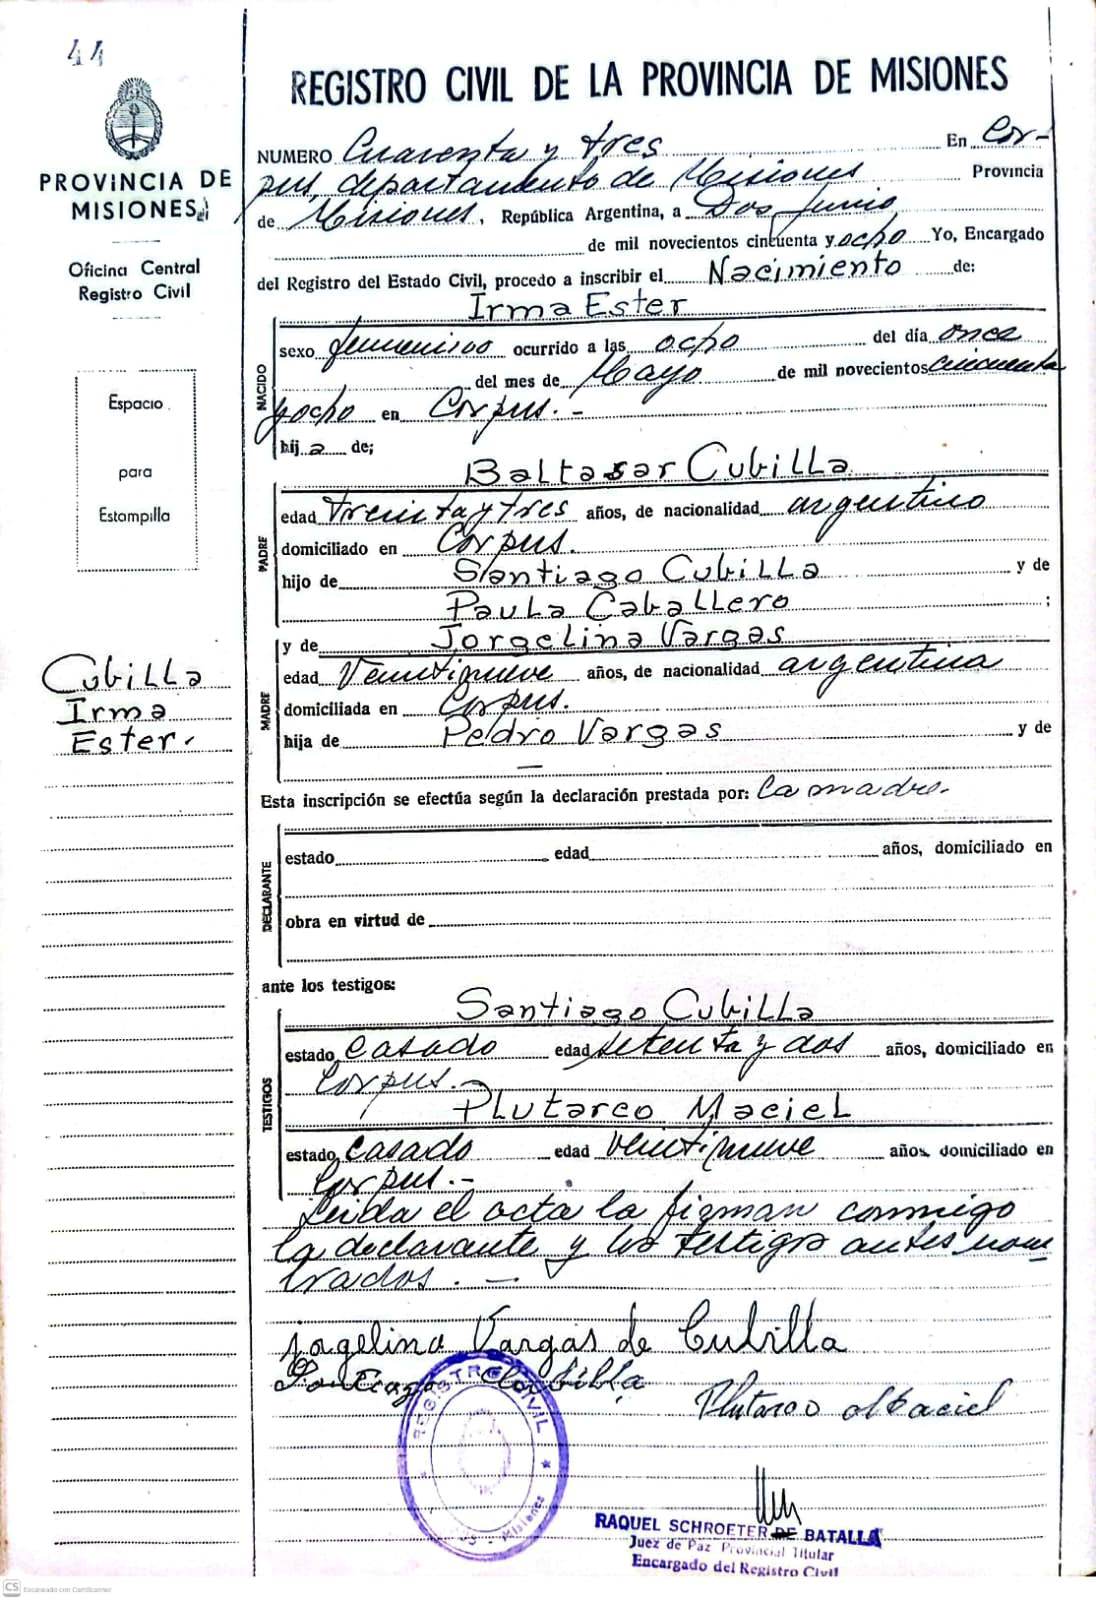 44
PROVINCIA DE
MISIONES
Oficina Central
Registro Civil
Espacio
para
Estampilla
Cubilla
Irma
Ester.
REGISTRO CIVIL DE LA PROVINCIA DE MISIONES
NUMERO Cuarenta y tres En Cor-
pus, departamento de Misiones Provincia
de Misiones, República Argentina, a Dos Junio
de mil novecientos cincuenta y ocho Yo, Encargado
del Registro del Estado Civil, procedo a inscribir el Nacimiento de:
Irma Ester
NACIDO
sexo femenino ocurrido a las ocho del día once
del mes de Mayo de mil novecientos cincuenta
y ocho en Corpus.-
hija de;
Baltasar Cubilla
PADRE
edad treinta y tres años, de nacionalidad argentino
domiciliado en Corpus.
hijo de Santiago Cubilla y de
Paula Caballero ;
y de Jorgelina Vargas
MADRE
edad Veintinueve años, de nacionalidad argentina
domiciliada en Corpus.
hija de Pedro Vargas y de
—
Esta inscripción se efectúa según la declaración prestada por: La madre.
DECLARANTE
estado edad años, domiciliado en
obra en virtud de
ante los testigos:
Santiago Cubilla
TESTIGOS
estado casado edad setenta y dos años, domiciliado en
Corpus.-
Plutarco Maciel
estado casado edad veintinueve años, domiciliado en
Corpus.-
Leida el acta la firman conmigo
la declarante y los testigos antes nom
brados. —
Jorgelina Vargas de Cubilla
Santiago Cubilla
Plutarco Maciel
REGISTRO CIVIL
Misiones
RAQUEL SCHROETER DE BATALLA
Juez de Paz Provincial Titular
Encargado del Registro Civil
CS Escaneado con CamScanner